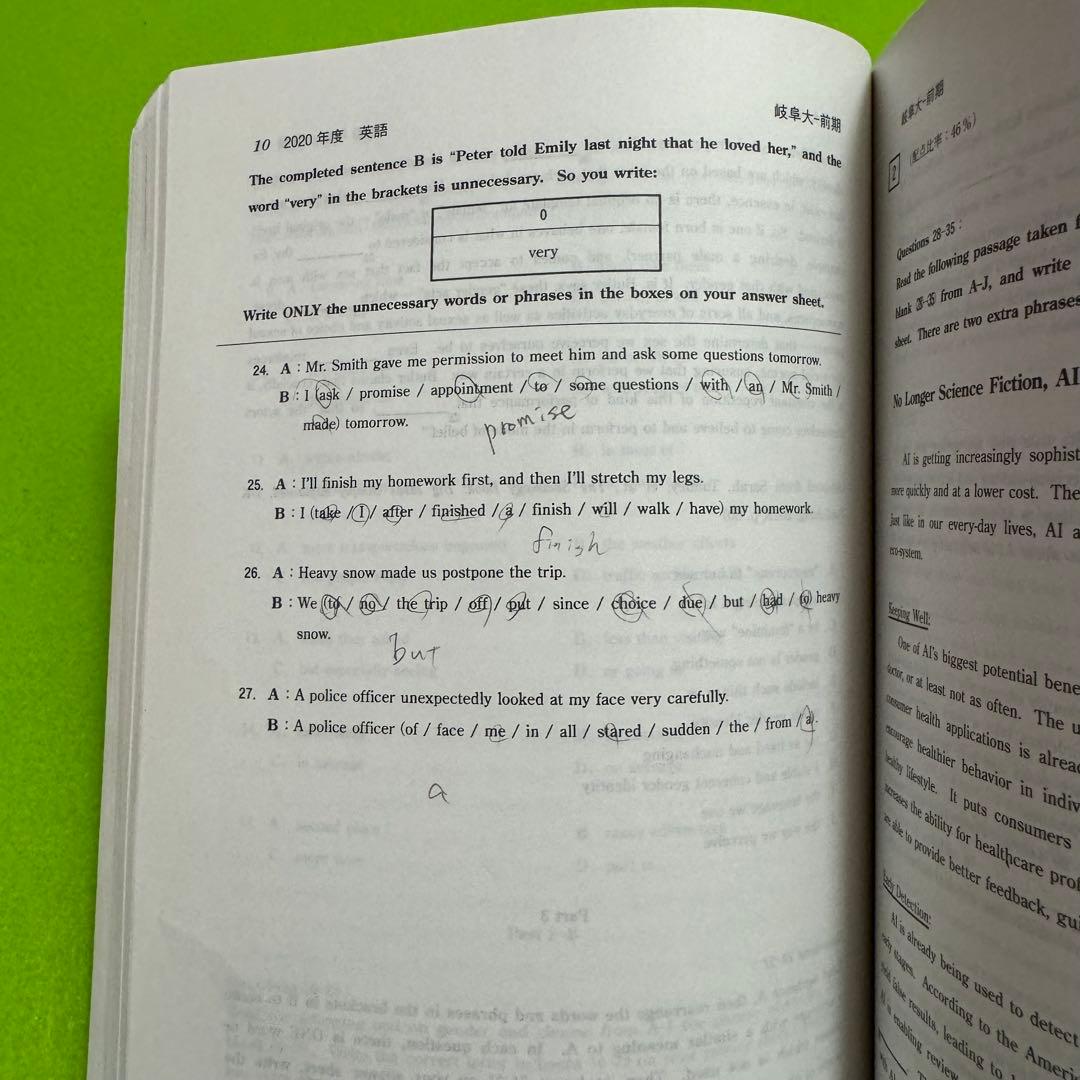 10 2020年度 英語
岐阜大-前期
The completed sentence B is “Peter told Emily last night that he loved her,” and the
word “very” in the brackets is unnecessary. So you write:
0
very
Write ONLY the unnecessary words or phrases in the boxes on your answer sheet.
24. A : Mr. Smith gave me permission to meet him and ask some questions tomorrow.
B : I (ask / promise / appointment / to / some questions / with / an / Mr. Smith /
made) tomorrow.
promise
25. A : I’ll finish my homework first, and then I’ll stretch my legs.
B : I (take / I / after / finished / a / finish / will / walk / have) my homework.
finish
26. A : Heavy snow made us postpone the trip.
B : We (to / no / the trip / off / put / since / choice / due / but / had / to) heavy
snow.
but
27. A : A police officer unexpectedly looked at my face very carefully.
B : A police officer (of / face / me / in / all / stared / sudden / the / from / a).
a
岐阜大-前期
2 (配点比率：46%)
Questions 28-35 :
Read the following passage taken
blank 28-35 from A-J, and write
sheet. There are two extra phrases
No Longer Science Fiction, AI
AI is getting increasingly sophist
more quickly and at a lower cost. The
just like in our every-day lives, AI a
eco-system.
Keeping Well:
One of AI’s biggest potential bene
doctor, or at least not as often. The u
consumer health applications is alrea
encourage healthier behavior in indiv
healthy lifestyle. It puts consumers
increases the ability for healthcare prof
are able to provide better feedback, gui
Early Detection:
AI is already being used to detect
early stages. According to the Americ
yield false results, leading to
AI is enabling review